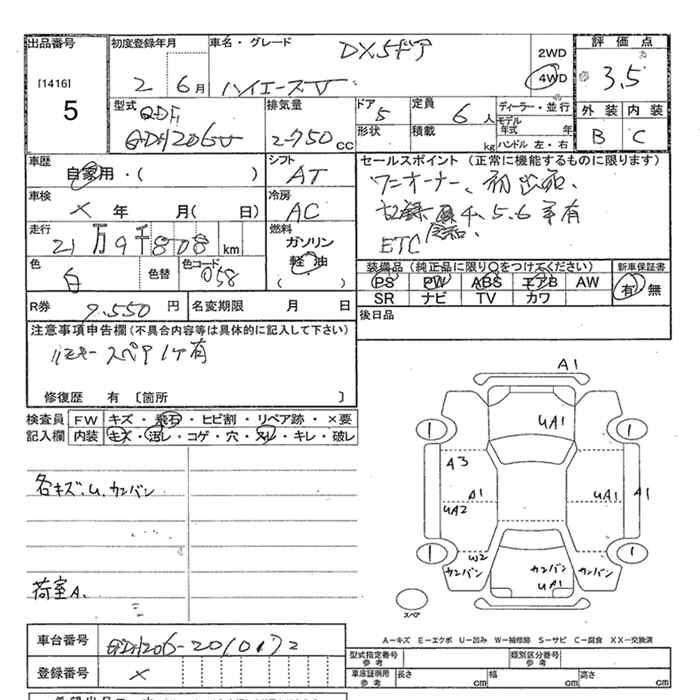 出品番号 初度登録年月 車名・グレード DX5ドア 2WD 評価点
[1416] 2 6月 ハイエースV 4WD 3.5
5 型式 QDF 排気量 ドア 5 定員 6人 ディーラー・並行 外装 内装
QDF GDH206V 2750cc 形状 積載 kg モデル年式 年 B C
ハンドル 左・右
車歴 自家用・( ) シフト AT セールスポイント (正常に機能するものに限ります)
車検 × 年 月( 日) 冷房 AC ワンオーナー、初出品、
走行 21万9千808km 燃料 ガソリン 記録 4、5、6年有
軽油 ( ) ETC
色 白 色替 色コード 058 装備品 (純正品に限り〇をつけてください) 新車保証書
PS PW ABS エアB AW 有 無
R券 9,550円 名変期限 月 日 SR ナビ TV カワ
注意事項申告欄(不具合内容等は具体的に記入して下さい) 後日品
リモキー スペア1ケ有
修復歴 有 [箇所 ]
検査員 FW キズ・飛石・ヒビ割・リペア跡・×要
記入欄 内装 キズ・汚レ・コゲ・穴・スレ・キレ・破レ
各キズ.U.カンバン
荷室A.
A1
UA1
1 1
A3
A1 UA1 A1
UA2
1 W2 1
カンバン カンバン カンバン
UA1
スペア
A-キズ E-エクボ U-凹み W-補修跡 S-サビ C-腐食 XX-交換済
車台番号 GDH206-2010172
型式指定番号 参考 類別区分番号 参考
登録番号 × 車庫証明用 参考 長さ cm 幅 cm 高さ cm